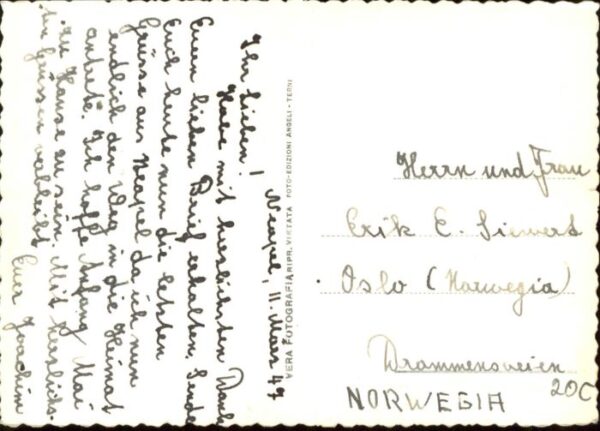 Neapel, 11. März 49
Ihr Lieben!
Habe mit herzlichsten Dank
Euren lieben Brief erhalten, Sende
Euch heute nun die letzten
Grüsse aus Neapel da ich nun
endlich den Weg in die Heimat
antrete. Ich hoffe Anfang Mai
zu Hause zu sein. Mit herzlich-
sten Grüssen verbleibt
Euer Joachim
VERA FOTOGRAFIA RIPR. VIETATA FOTO-EDIZIONI ANGELI - TERNI
Herrn und Frau
Erik E. Siewers
Oslo (Norwegia)
Drammensveien
20C
NORWEGIA